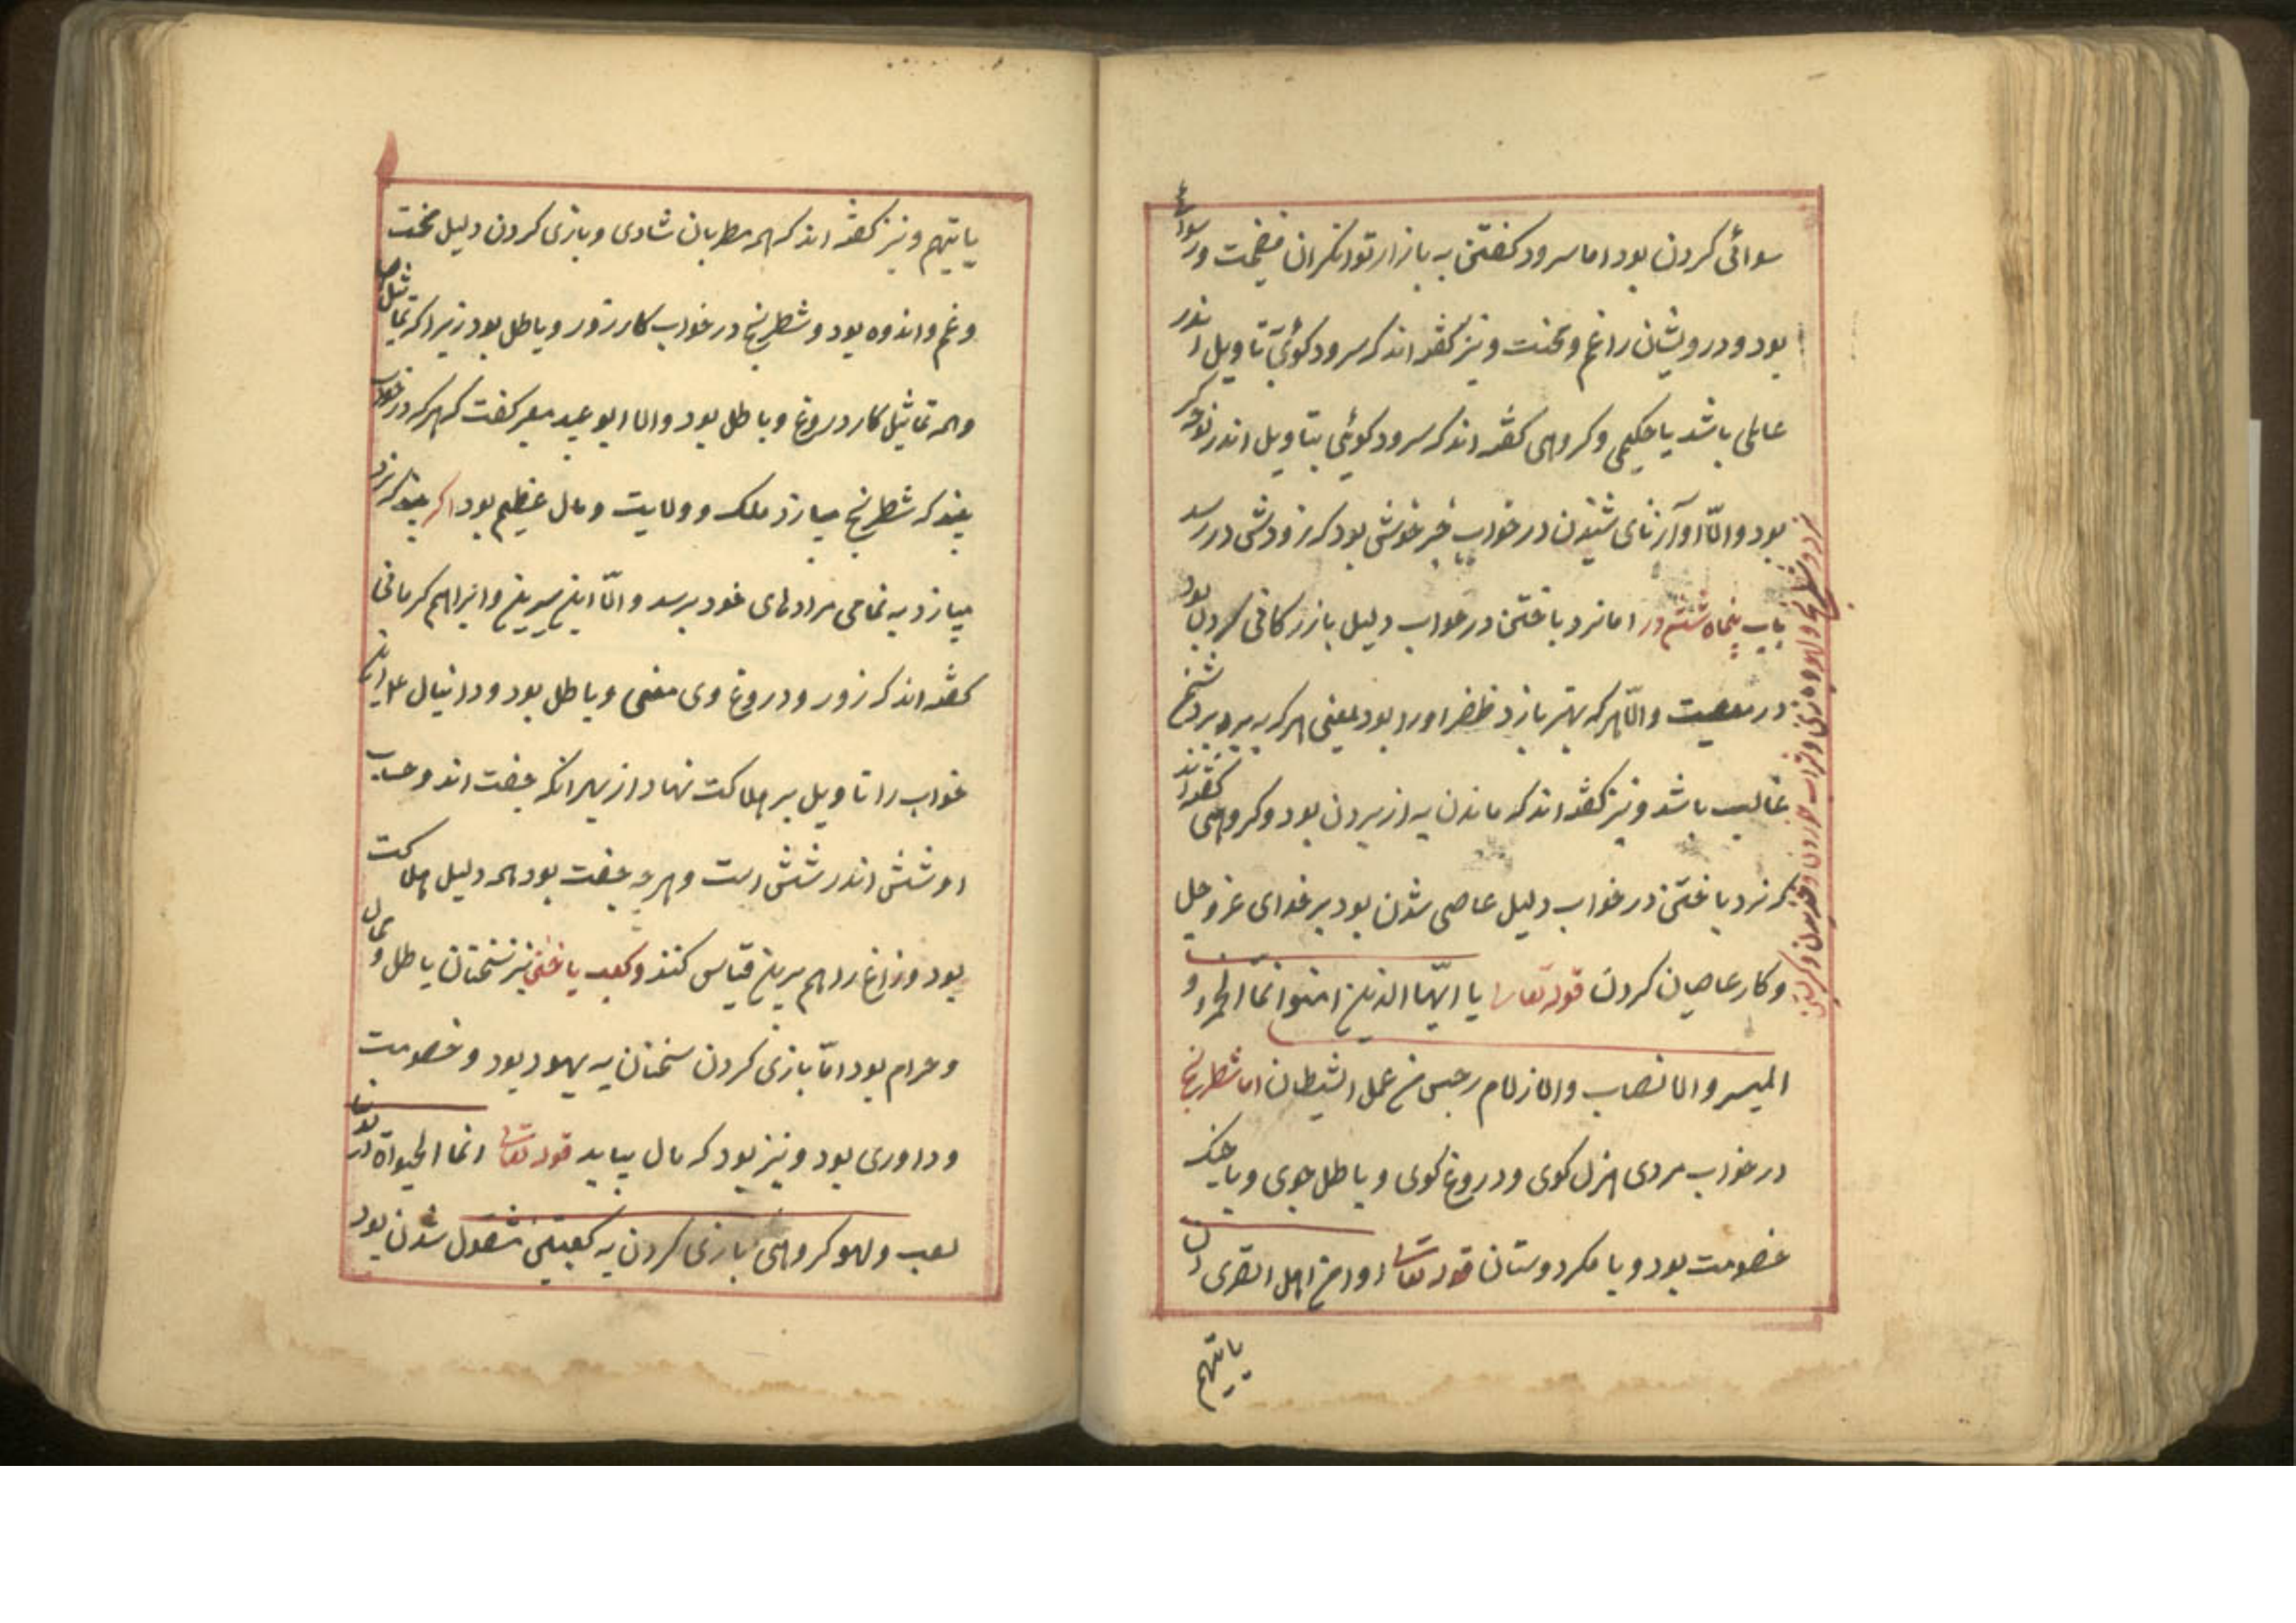 سوائی کردن بود اما سرود کفتن به بازار توانکران فضیحت و رسوائی
بود و درویشان را غم و محنت و نیز کفته اند که سرود کوئی بتاویل اندر
عاملی باشد یا حکیمی و کروهی کفته اند که سرود کوئی بتاویل اندر نوحه کر
بود والّا آواز نای شنیدن در خواب خبر خوشی بود که زودش در رسد
باب پنجاه ششم در اما نرد باختن در خواب دلیل بازرکانی کردن بود
نرد و شطرنج و لهو و بازی و
در معصیت والّا هر که بهتر بازد ظفر او را بود یعنی هر که به برد بر دشمن
غالب باشد و نیز کفته اند که ماندن به از بردن بود و کروهی کفته اند
که نرد باختن در خواب دلیل عاصی شدن بود بر خدای عز و جل
و کار عاصیان کردن قوله تعالی یا ایّها الذین امنوا انمّا الخمر و
المیسر والانصاب والازلام رجس من عمل الشیطان اما شطرنج
در خواب مردی هزل کوی و دروغ کوی و باطل جوی و با جنک
خصومت بود و با مکر دوستان قوله تعالی اوامن اهل القری ان
یاتیهم
یاتیهم و نیز کفته اند که همه مطربان شادی و بازی کردن دلیل محنت
و غم و اندوه بود و شطرنج در خواب کار زور و باطل بود زیرا که تماثیل
و همه تماثیل کار دروغ و باطل بود والا ابو عبید معبر کفت که هر که در خواب
بیند که شطرنج میبازد ملک و ولایت و مال عظیم بود اکر بیند که نرد
میبازد به تمامی مرادهای خود برسد والّا ابن سیرین و ابراهیم کرمانی
کفته اند که زور و دروغ وی معنی و باطل بود و دانیال علیه
خواب را تاویل بر هلاکت نهاد از بهر انکه جفت اند و حساب
او شش اندر شش است و هر چه جفت بود همه دلیل هلاکت
بود و زاغ را هم برین قیاس کنند و کعب باختن نیز سخنان باطل و
و حرام بود امّا بازی کردن سخنان به یهود بود و خصومت
و داوری بود و نیز بود که مال بیابد قوله تعالی انما الحیوة الدنیا
لعب و لهو کروهی ببازی کردن به کعبتین مشغول شدن بود